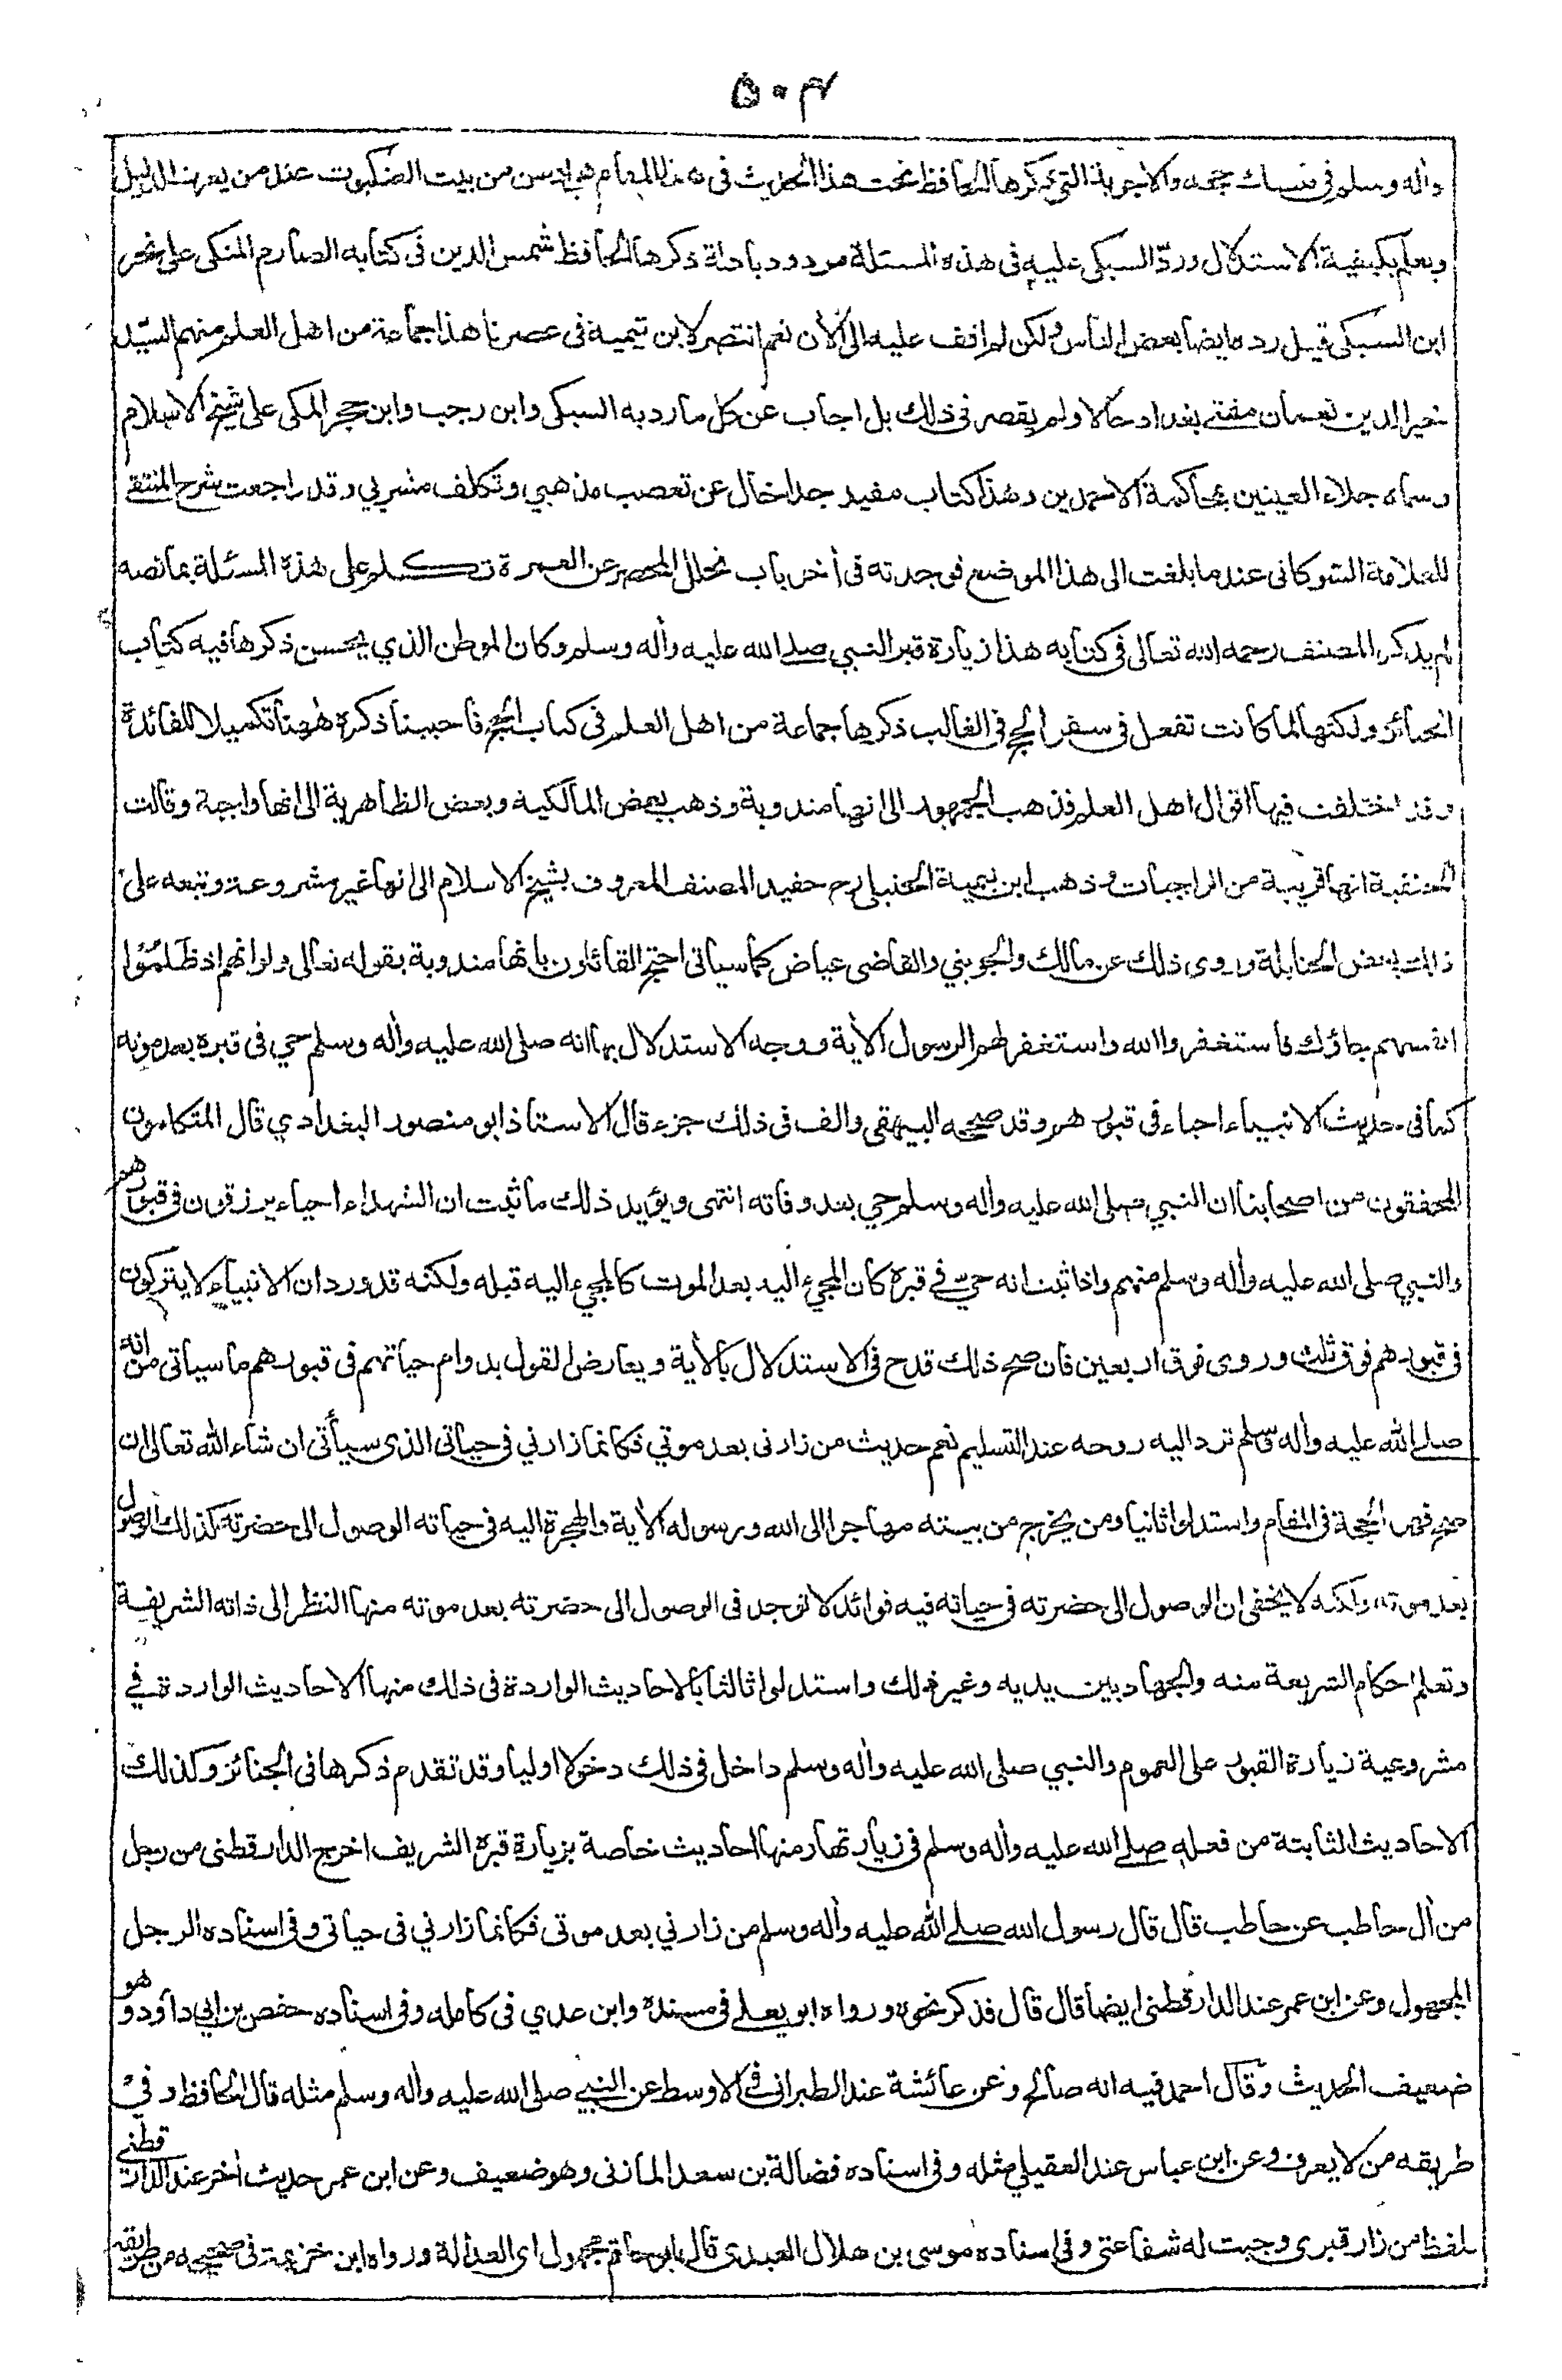 ٥٠٣
واٰله وسلم في منسك حجته والاجوبة التي ذكرها الحافظ تحت هذا الحديث في هذا المقام هي اوهن من بيت العنكبوت عند من يعرف الدليل
ويعلم بكيفية الاستدلال وردّ السبكي عليه في هذه المسئلة مردود بادلة ذكرها الحافظ شمس الدين في كتابه الصارم المنكي على نحر
ابن السبكي قيل رده ايضا بعض الناس ولكن لم اقف عليه الى الاٰن نعم انتصر لابن تيمية في عصرنا هذا جماعة من اهل العلم منهم السيّد
خير الدين نعمان مفتي بغداد حالا ولم يقصر في ذلك بل اجاب عن كل ما رد به السبكي وابن رجب وابن حجر المكي على شيخ الاسلام
وسماه جلاء العينين بمحاكمة الاحمدين وهذا كتاب مفيد جدا خال عن تعصب مذهبي وتكلف مشربي وقد راجعت شرح المنتقى
للعلامة الشوكاني عند ما بلغت الى هذا الموضع فوجدته في اٰخر باب تحلل المحصر عن العمرة تكلم على هذه المسئلة بما نصه
لم يذكر المصنف رحمه الله تعالى في كتابه هذا زيارة قبر النبي صلى الله عليه واٰله وسلم وكان الموطن الذي يحسن ذكرها فيه كتاب
الجنائز ولكنها لما كانت تفعل في سفر الحج في الغالب ذكرها جماعة من اهل العلم في كتاب الحج فاحببنا ذكره هٰهنا تكميلا للفائدة
وقد اختلفت فيها اقوال اهل العلم فذهب الجمهور الى انها مندوبة وذهب بعض المالكية وبعض الظاهرية الى انها واجبة وقالت
الحنفية انها قريبة من الواجبات وذهب ابن تيمية الحنبلي رح حفيد المصنف المعروف بشيخ الاسلام الى انها غير مشروعة وتبعه على
ذلك بعض الحنابلة وروى ذلك عن مالك والجويني والقاضي عياض كما سياتي احتج القائلون بانها مندوبة بقوله تعالى ولو انهم اذ ظلموا
انفسهم جاؤك فاستغفروا الله واستغفر لهم الرسول الاٰية ووجه الاستدلال بها انه صلى الله عليه واٰله وسلم حي في قبره بعد موته
كما في حديث الانبياء احياء في قبورهم وقد صححه البيهقي والف في ذلك جزء قال الاستاذ ابو منصور البغدادي قال المتكلمون
المحققون من اصحابنا ان النبي صلى الله عليه واٰله وسلم حي بعد وفاته انتهى ويؤيد ذلك ما ثبت ان الشهداء احياء يرزقون في قبورهم
والنبي صلى الله عليه واٰله وسلم منهم واذا ثبت انه حيّ في قبره كان المجيء اليه بعد الموت كالمجيء اليه قبله ولكنه قد ورد ان الانبياء لا يتركون
في قبورهم فوق ثلث وروى فوق اربعين فان صح ذلك قدح في الاستدلال بالاٰية ويعارض القول بدوام حياتهم في قبورهم ما سياتي من انه
صلى الله عليه واٰله وسلم ترد اليه روحه عند التسليم نعم حديث من زارني بعد موتي فكانما زارني في حياتي الذي سيأتي ان شاء الله تعالى ان
صح فهو الحجة في المقام واستدلوا ثانيا ومن يخرج من بيته مهاجرا الى الله ورسوله الاٰية والهجرة اليه في حياته الوصول الى حضرته كذلك الوصول
بعد موته ولكنه لا يخفى ان الوصول الى حضرته في حياته فيه فوائد لا توجد في الوصول الى حضرته بعد موته منها النظر الى ذاته الشريفة
وتعلم احكام الشريعة منه والجهاد بين يديه وغير ذلك واستدلوا ثالثا بالاحاديث الواردة في ذلك منها الاحاديث الواردة في
مشروعية زيارة القبور على العموم والنبي صلى الله عليه واٰله وسلم داخل في ذلك دخولا اوليا وقد تقدم ذكرها في الجنائز وكذلك
الاحاديث الثابتة من فعله صلى الله عليه واٰله وسلم في زيارتها ومنها احاديث خاصة بزيارة قبره الشريف اخرج الدارقطني من رجل
من اٰل حاطب عن حاطب قال قال رسول الله صلى الله عليه واٰله وسلم من زارني بعد موتي فكانما زارني في حياتي وفي اسناده الرجل
المجهول وعن ابن عمر عند الدارقطني ايضا قال قال فذكر نحوه ورواه ابو يعلى في مسنده وابن عدي في كامله وفي اسناده حفص بن ابي داؤد وهو
ضعيف الحديث وقال احمد فيه انه صالح وعن عائشة عند الطبراني في الاوسط عن النبي صلى الله عليه واٰله وسلم مثله قال الحافظ وفي
طريقه من لا يعرف وعن ابن عباس عند العقيلي مثله وفي اسناده فضالة بن سعد المازني وهو ضعيف وعن ابن عمر حديث اٰخر عند الدارقطني
بلفظ من زار قبري وجبت له شفاعتي وفي اسناده موسى بن هلال العبدي قال ابو حاتم مجهول اي العدالة ورواه ابن خزيمة في صحيحه من طريقه